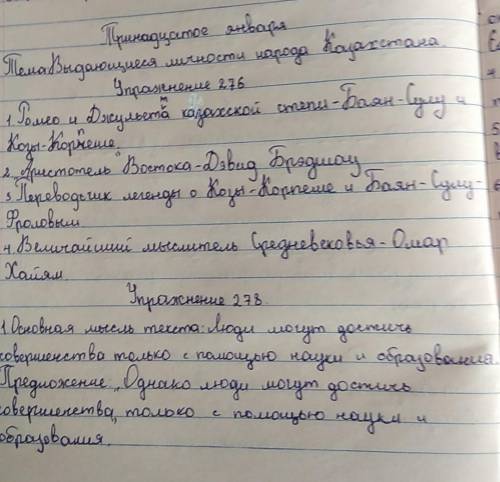 Принадцатое января
Тема: Выдающиеся личности народа Казахстана.
Упражнение 276
1. Ромео и Джульетта казахской степи-Баян-Сулу и
Козы-Корпеше.
2. "Аристотель" Востока-Дэвид Брэдшоу
3. Переводчик легенды о Козы-Корпеше и Баян-Сулу-
Фроловым
4. Величайший мыслитель Средневековья-Омар
Хайям.
Упражнение 278.
1. Основная мысль текста: Люди могут достичь
совершенства только с помощью науки и образования.
Предложение: "Однако люди могут достичь
совершенства, только с помощью науки и
образования.